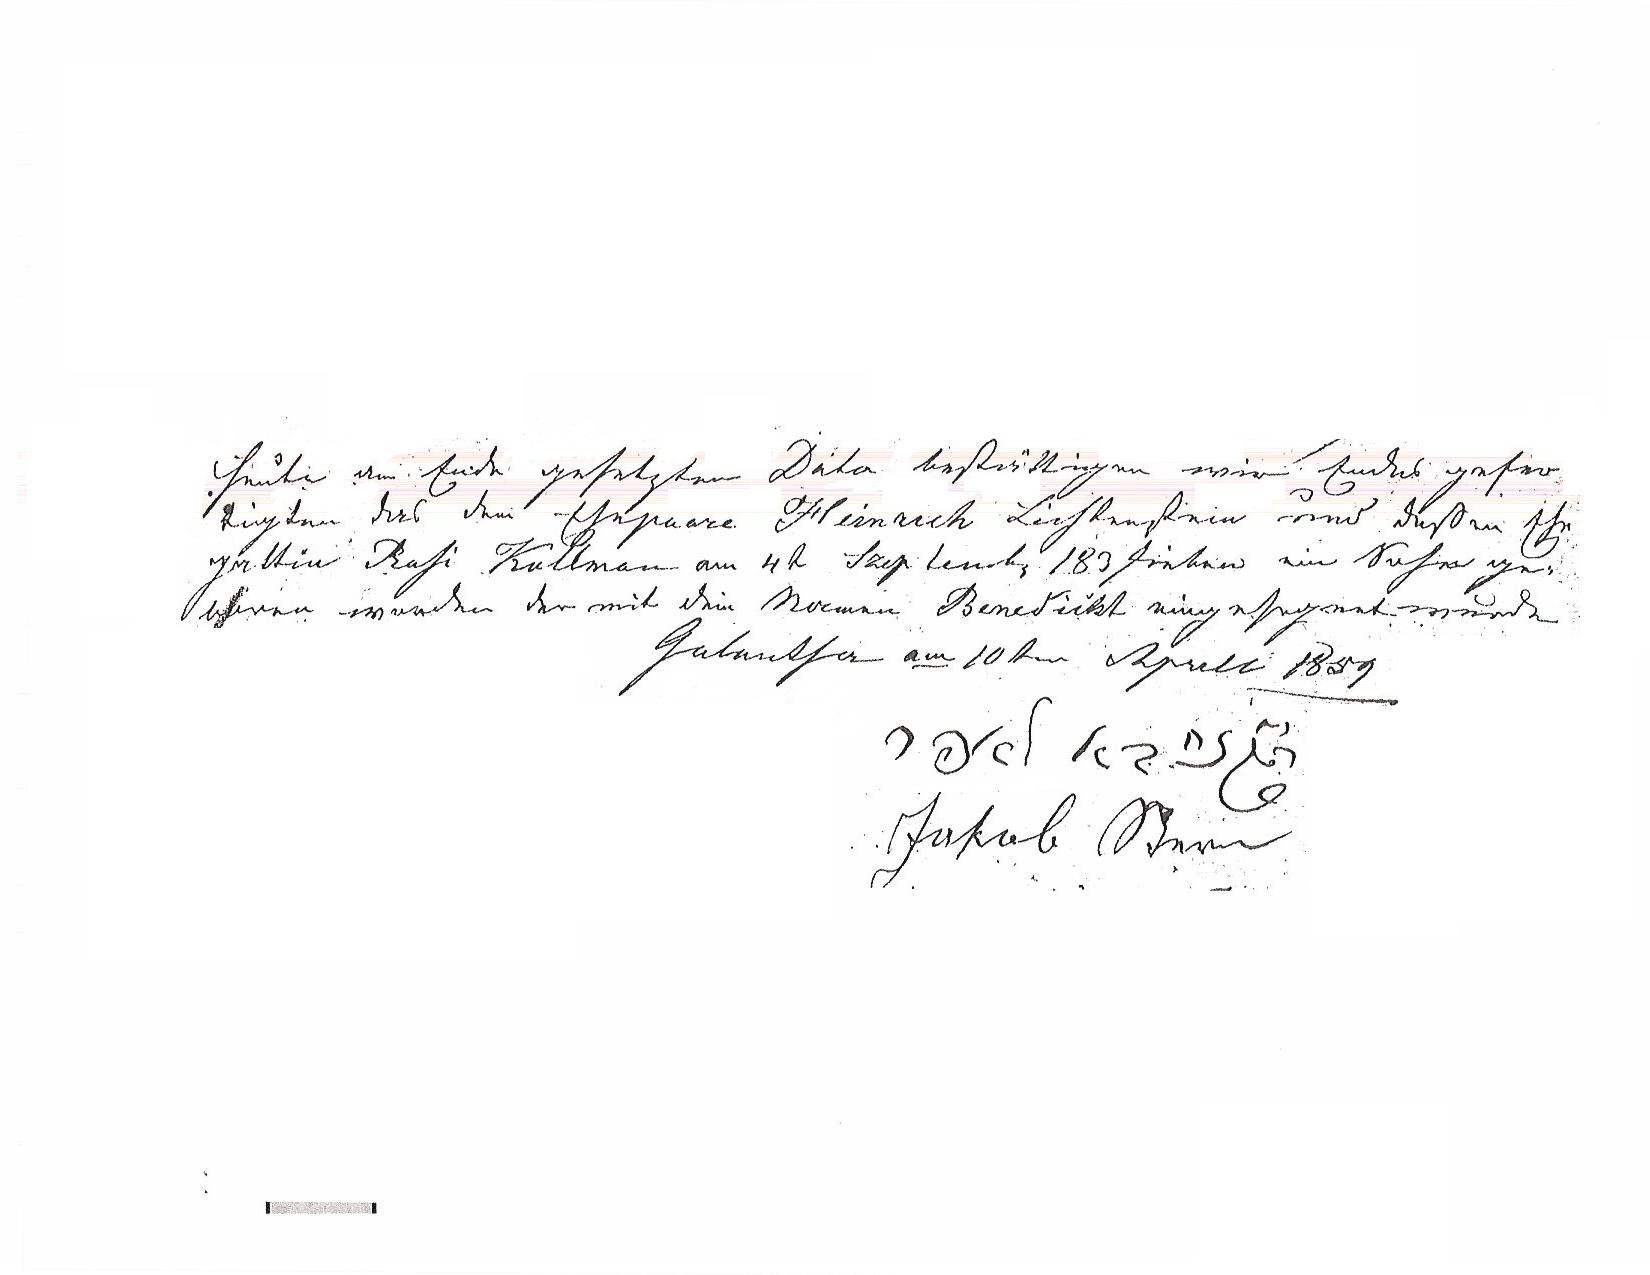 Heute am Ende gesetzten Dato bestättigen wir Endes gefer
tigten das dem Ehepaare Heinrich Lichtenstein und dessen Ehe
gattin Rosi Kollman am 4t Septemb 183 sieben ein Sohn ge-
boren worden der mit dem Nammen Benedickt eingesegnet wurde
Galantha am 10ten Aprill 1859
Jakob Stern